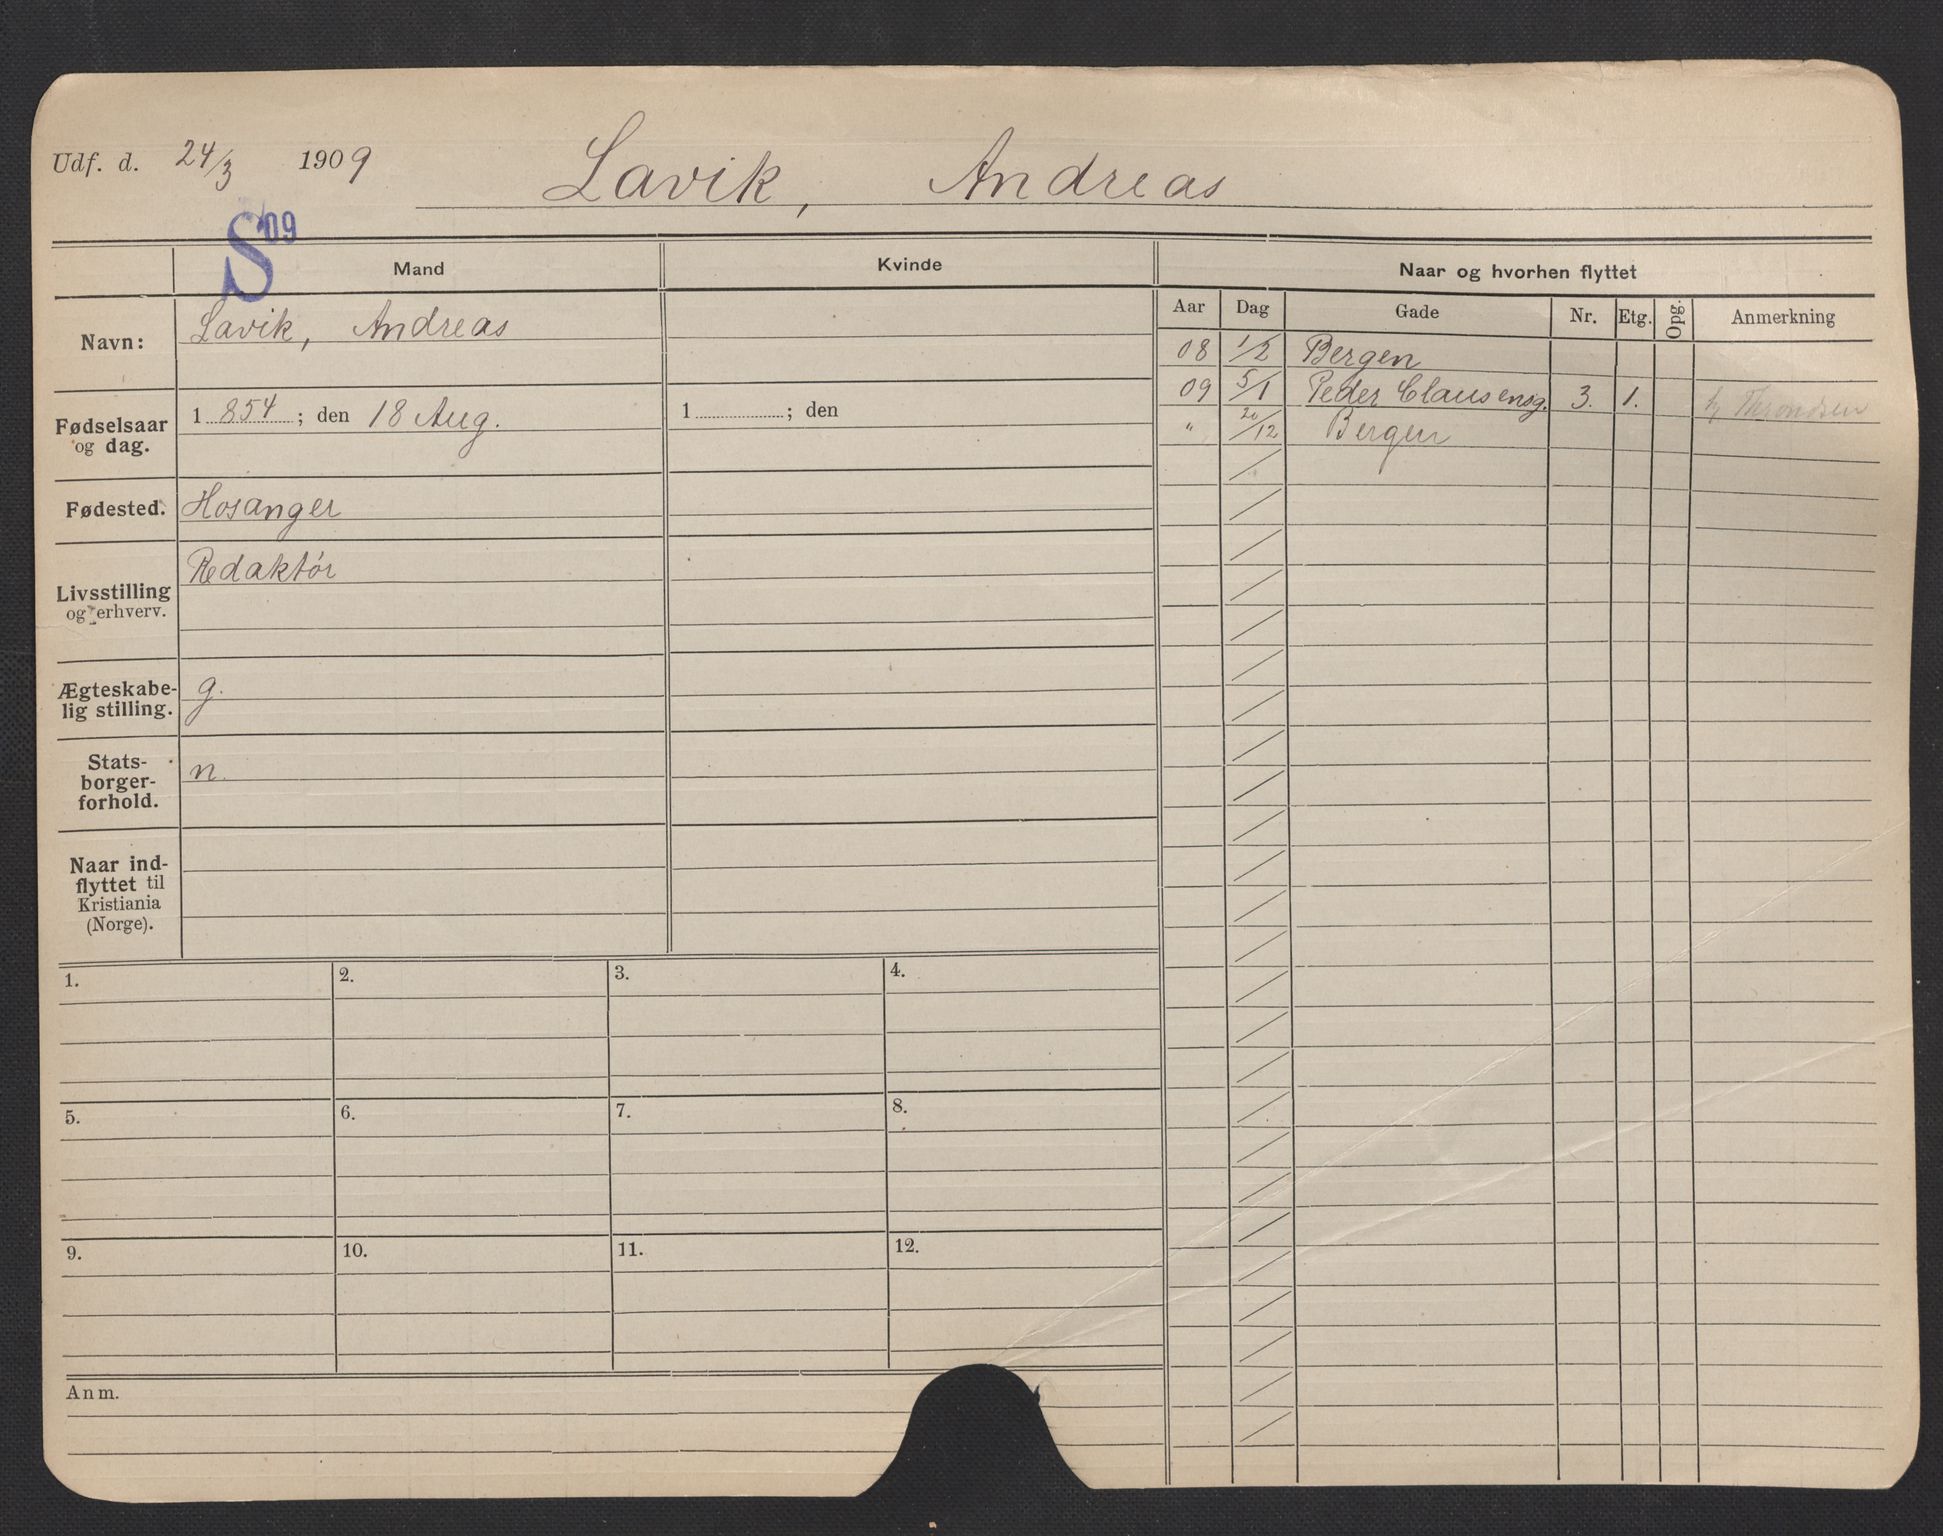 Udf. d. 24/3 1909
Lavik, Andreas
S 09
Mand
Kvinde
Naar og hvorhen flyttet
Navn:
Lavik, Andreas
Fødselsaar
og dag.
1 854 ; den 18 Aug.
1 ; den
Fødested.
Hosanger
Livsstilling
og erhverv.
Redaktör
Ægteskabe-
lig stilling.
g.
Stats-
borger-
forhold.
n.
Naar ind-
flyttet til
Kristiania
(Norge).
Aar Dag Gade Nr. Etg. Opg. Anmerkning
08 1/2 Bergen
09 5/1 Peder Clausensg. 3. 1. Throndsen
" 20/12 Bergen
1. 2. 3. 4.
5. 6. 7. 8.
9. 10. 11. 12.
Anm.